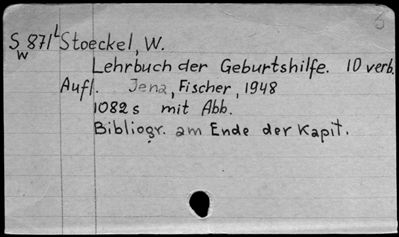 S 871 L Stoeckel, W.
W
Lehrbuch der Geburtshilfe. 10 verb.
Aufl. Jena, Fischer, 1948
1082 s mit Abb.
Bibliogr. am Ende der Kapit.